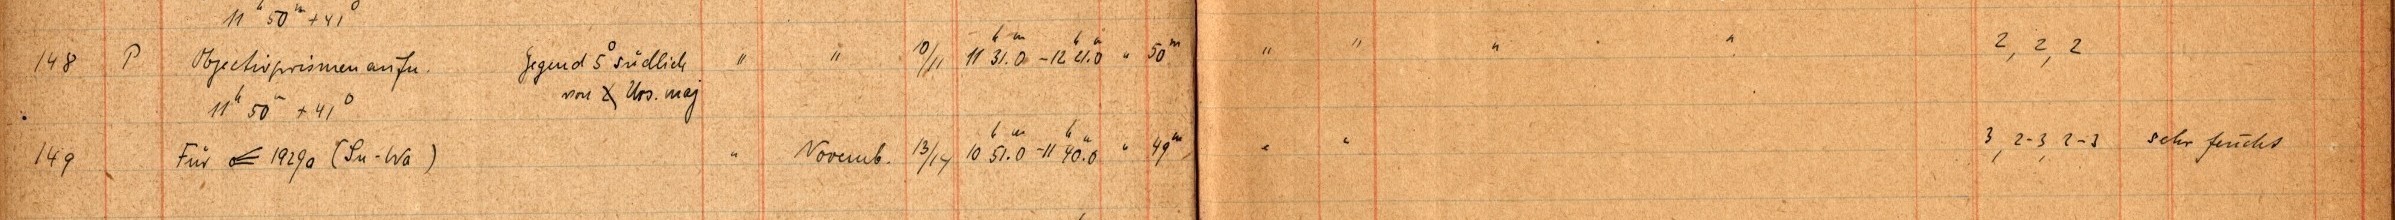 11ʰ 50ᵐ + 41⁰
148 P Objectivprismenaufn. Gegend 5⁰ südlich " " 10/11 11ʰ 31.ᵐ0 - 12ʰ 21.ᵐ0 " 50ᵐ " " " " 2, 2, 2
11ʰ 50ᵐ + 41⁰ von χ Urs. maj
149 Für 1929a (Su-Wa) " Novemb. 13/14 10ʰ 51.ᵐ0 - 11ʰ 40.ᵐ0 " 49ᵐ " " 3, 2-3, 2-3 sehr feucht